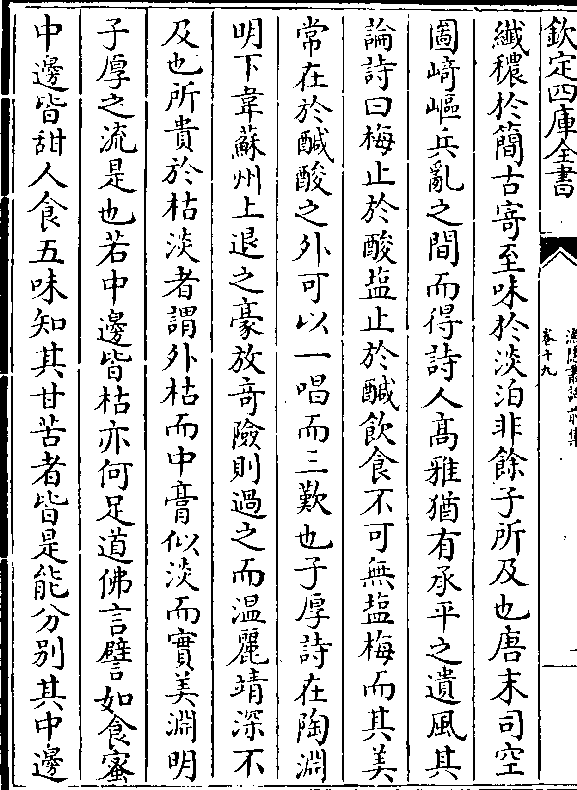 欽定四庫全書
漁隱叢話前集
卷十九
纎穠於簡古寄至味於淡泊非餘子所及也唐末司空
圖崎嶇兵亂之間而得詩人髙雅猶有承平之遺風其
論詩曰梅止於酸盐止於醎飲食不可無盐梅而其美
常在於醎酸之外可以一唱而三歎也子厚詩在陶淵
明下韋蘇州上退之豪放竒險則過之而温麗靖深不
及也所貴於枯淡者謂外枯而中膏似淡而實美淵明
子厚之流是也若中邊皆枯亦何足道佛言譬如食蜜
中邊皆甜人食五味知其甘苦者皆是能分别其中邊